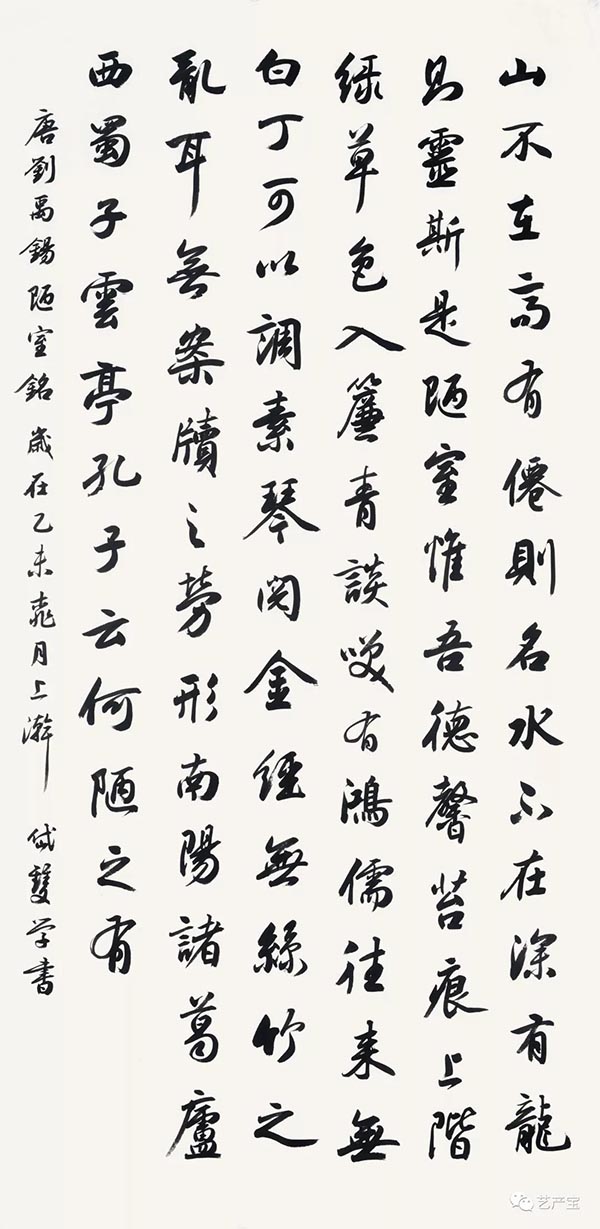 山不在高有僊則名水不在深有龍
則靈斯是陋室惟吾德馨苔痕上階
綠草色入簾青談笑有鴻儒往來無
白丁可以調素琴閱金經無絲竹之
亂耳無案牘之勞形南陽諸葛廬
西蜀子雲亭孔子云何陋之有
唐劉禹錫陋室銘歲在乙未月上澣雙学書
艺产宝